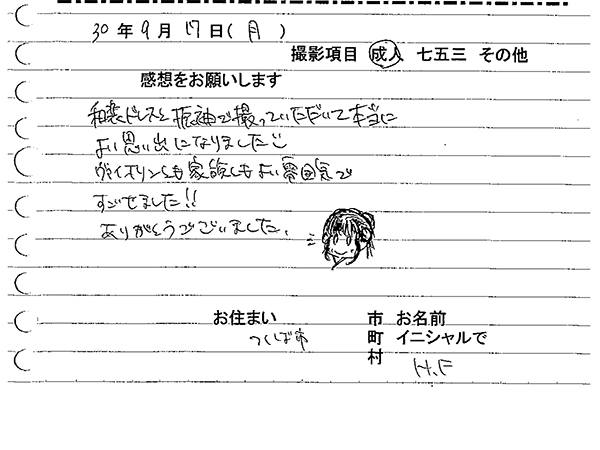 30年9月17日(月)
撮影項目 成人 七五三 その他
感想をお願いします
和装ドレスと振袖で撮っていただいて本当に
よい思い出になりました
ヴァイオリンとも家族ともよい雰囲気で
すごせました!!
ありがとうございました。
お住まい 市 お名前
つくば市 町 イニシャルで
村 H.F